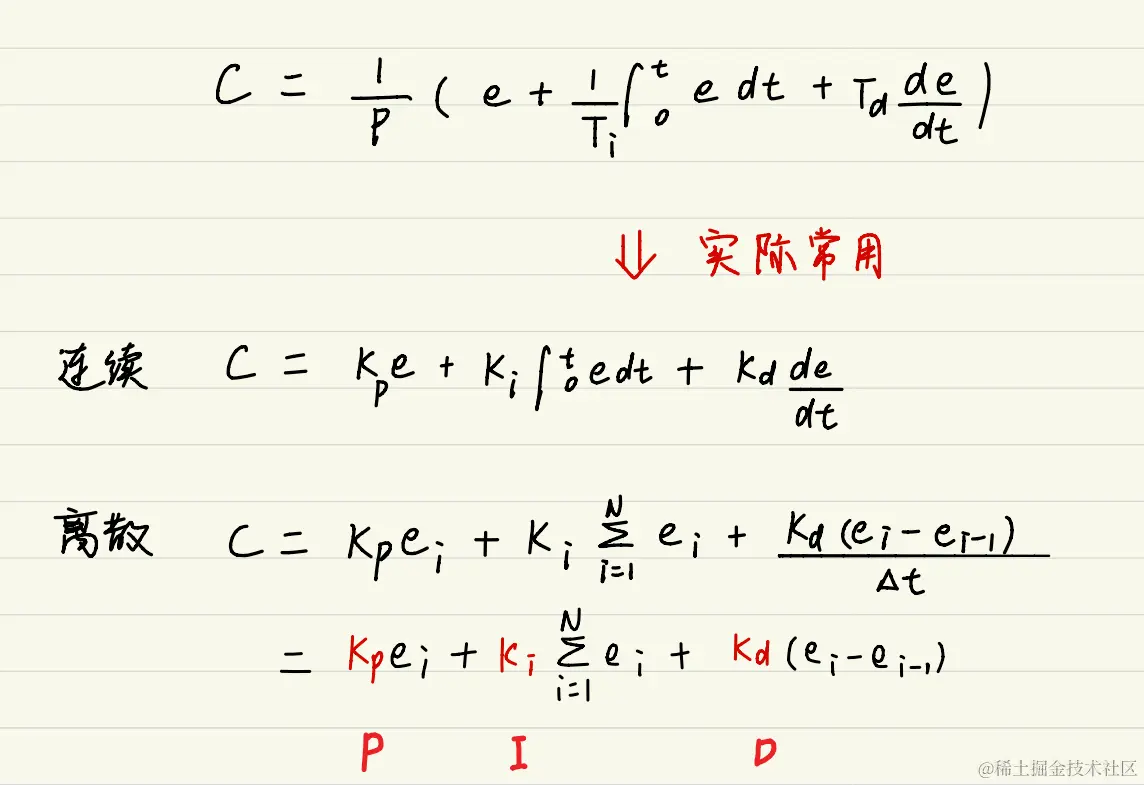 C = 1/P ( e + 1/Tᵢ ∫₀ᵗ e dt + T_d de/dt )
⇓ 实际常用
连续 C = Kₚe + Kᵢ ∫₀ᵗ edt + K_d de/dt
离散 C = Kₚeᵢ + Kᵢ ∑ᵢ₌₁ᴺ eᵢ + K_d(eᵢ - eᵢ₋₁)/Δt
= Kₚeᵢ + Kᵢ ∑ᵢ₌₁ᴺ eᵢ + K_d(eᵢ - eᵢ₋₁)
P I D
@稀土掘金技术社区